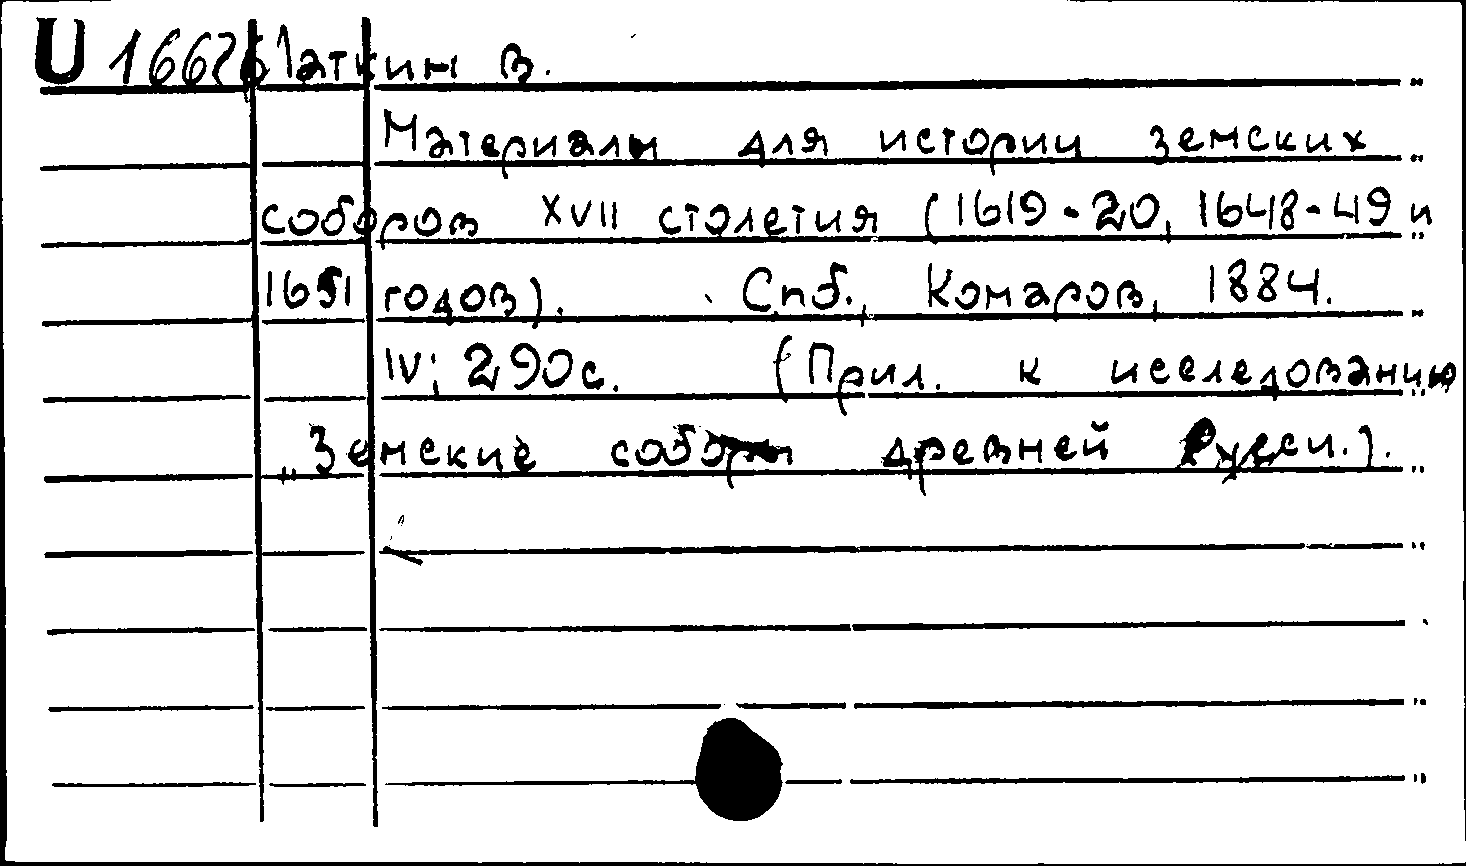 U 16626 Латкин В.
Материалы для истории земских
соборов XVII столетия (1619-20, 1648-49 и
1651 годов). Спб., Комаров, 1884.
IV; 290с. (Прил. к исследованию
„Земские соборы древней Руси.).